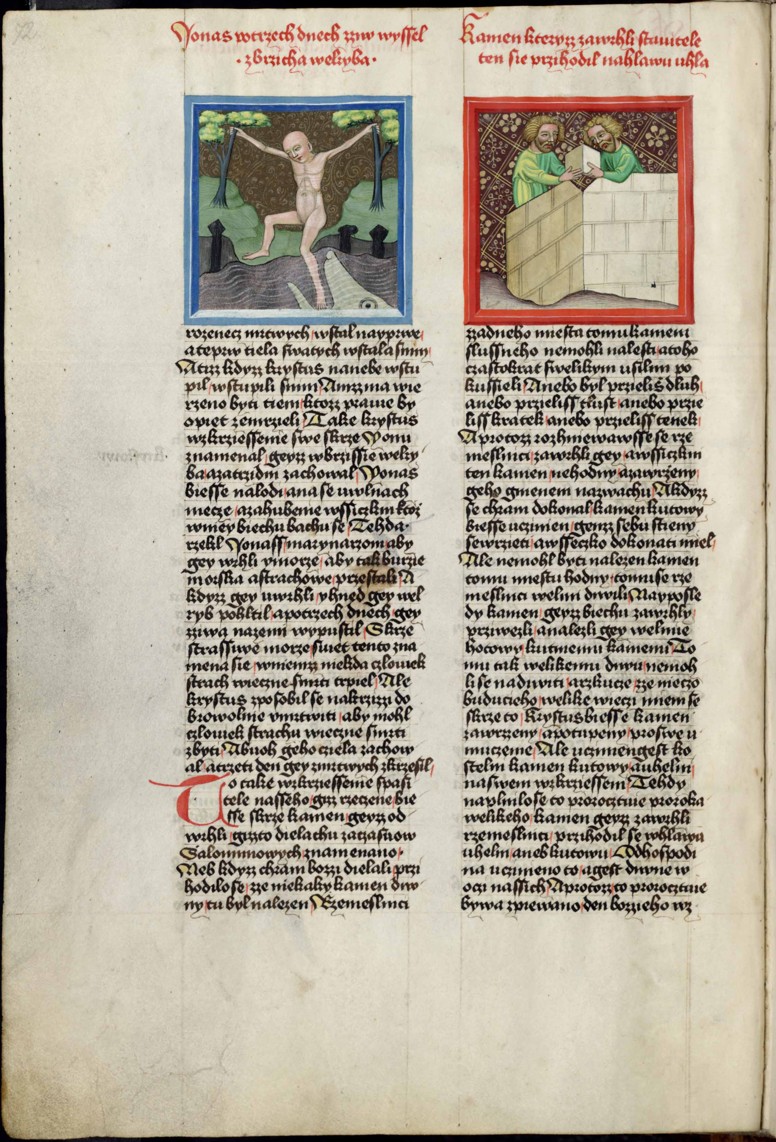 Jonas wotrzech dnech zziw wyssel
· zbrzicha welryba ·
rozenecz mrtwych wstal nayprwe
ateprw tiela swatych wstala snim
Atizz kdyzz krystus nanebe wstu
pil wstupili snim Amizz ma wie
rzeno byti tiem ktozz prawe by
opiet zemrzieli Take krystus
wzkrziessenie swe skrze Jonu
znamenal geyzz wbrzissie welry
ba azatrzidni zachowal Jonas
biesse nalodi ana se wwlnach
miecze azahubenie wssiczkni ktoz
wniey biechu bachu se Tehda
rzekl Jonass marynarzom aby
gey wrhli vmorze aby tak burzie
morska astrachowe przestali A
kdyzz gey uwrhli yhned gey wel
ryb pohltil apotrzech dnech gey
zziwa nazemi wypustil Skrze
strassiwe morze swiet tento zna
mena sie wniemz niekda czlowiek
strach wieczne smrti trpiel Ale
krystus zposobil se nakrzizzi do
browolnie vmrtwiti aby mohl
czlowiek strachu wieczne smrti
zbyti Abuoh geho cziela zachow
al atrzeti den gey zmrtwych zkrziesil
To také wzkrziessenie spasi
tele nasseho gizz rzeczene bie
sse skrze kamen geyzz od
wrhli gizzto dielachu zaczasuow
Salomunowych znamenano
Neb kdyzz chram bozzi dielali przi
hodilo se zze niekaky kamen diw
ny tu byl nalezen Rzemeslnici
Kamen kteryzz zawrhli stawitele
ten sie przihodil nahlawu uhla
zzadneho miesta tomu kameni
slussneho nemohli nalesti atoho
czastokrat swelikym usilim po
kussieli Anebo byl przielis dluh
anebo przieliss tlust anebo przie
liss kratek anebo przieliss tenek
Aprotozz rozhniewawsse se rze
meslnici zawrhli gey awssiczkni
ten kamen nehodny azawrzeny
geho gmenem nazwachu Akdyzz
se chram dokonal kamen kutowy
biesse uczinien gemz sebu stieny
sewrzieti awsseczko dokonati miel
Ale nemohl byti nalezen kamen
tomu miestu hodny tomu se rze
meslnici welmi diwili Nayposle
dy kamen geyzz biechu zawrhly
prziwezli analezli gey welmie
hotowy kutniemu kameni To
mu tak welikemu diwu nemoh
li se nadiwiti arzkucze zze nieczo
buducieho welike wieczi mieni se
skrze to Krystus biesse kamen
zawrzeny apotupeny proswe u
muczenie Ale uczinien gest ko
stelni kamen kutowy auhelni
naswem wzkrziesseni Tehdy
naplnilo se to proroctwie proroka
welikeho kamen geyzz zawrhli
rzemeslnici przihodil se whlawu
uhelni aneb kutowu Od hospodi
na uczineno to agest diwne w
oczi nassich Aprotozz to proroctwie
bywa zpiewano den bozzieho wz